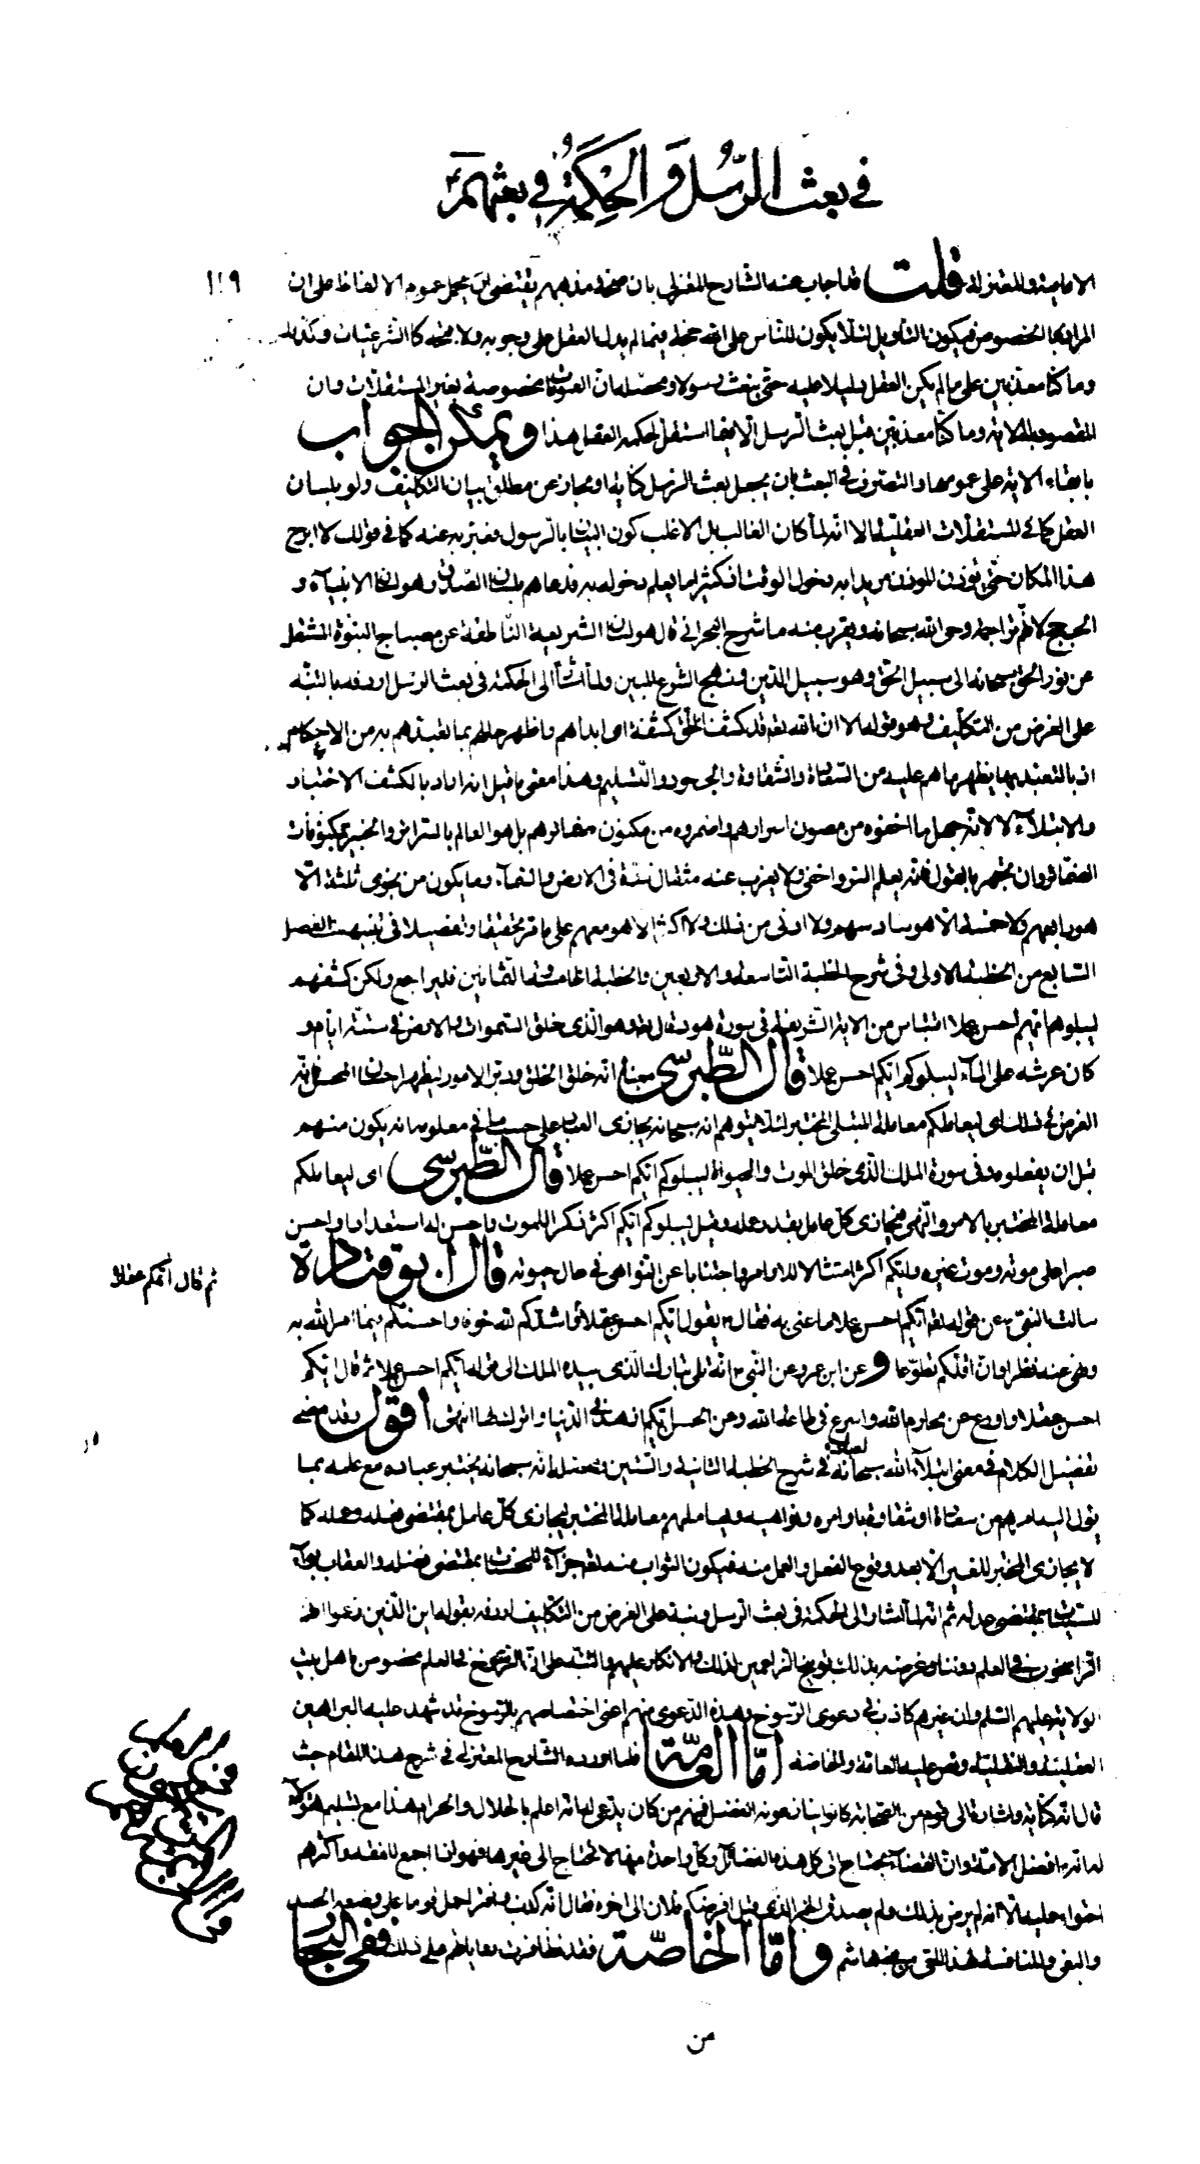 في بعث الرّسل و الحكمةُ في بعثهم
١١٩
الامامية والمعتزلة قلت قد اجاب عنه الشارح المعتزلي بان صحة مذهبهم يقتضى ان يحمل عموم الالفاظ على ان
المراد بها الخصوص فيكون التأويل لئلا يكون للناس على الله حجة فيما لم يدل العقل على وجوبه ولا قبحه كالشرعيات وكذلك
وما كنا معذبين على ما لم يكن العقل دليلا عليه حتى نبعث رسولا ومحصّله ان العقوبات مخصوصة بغير المستقلات وان
المقصود بالاية وما كنّا معذبين قبل بعث الرسل الا فيما استقل بحكمه العقل هذا ويمكن الجواب
بابقاء الاية على عمومها والتصرف في البعث بان يجعل بعث الرسل كناية او مجاز عن مطلق بيان التكليف ولو بلسان
العقل كما في المستقلات العقلية الا انه لما كان الغالب بل الاغلب كون البيان بالرسول فعبّر به عنه كما في قولك لا ابرح
هذا المكان حتى يؤذن المؤذن مريدا به دخول الوقت اذ كثيرا ما يعلم دخوله به فدعاهم بلسان الصدق وهو لسان الانبياء و
الحجج لانهم تراجمة وحى الله سبحانه ويقرب منه ما شرح البحراني قال هو لسان الشريعة الناطقة عن مصباح النبوة المشتعل
عن نور الحق سبحانه الى سبيل الحق وهو سبيل الدين ومنهج الشرع المبين ولما اشار الى الحكمة في بعث الرسل اردفه بالتنبيه
على الغرض من التكاليف وهو قوله الا ان الله تعالى قد كشف الخلق كشفة اى ابداهم واظهر حالهم بما تعبدهم به من الاحكام
اذ بالتعبد بها يظهر ما هم عليه من السعادة والشقاوة والجحود والتسليم وهذا معنى ما قيل انه اراد بالكشف الاختبار
والابتلاء لا لانه جهل ما اخفوه من مصون اسرارهم واضمروه من مكنون ضمائرهم بل هو العالم بالسرائر والخبير بمكنونات
الضمائر وان تجهر بالقول فانه يعلم السر واخفى ولا يعزب عنه مثقال ذرة في الارض والسماء وما يكون من نجوى ثلثة الا
هو رابعهم ولا خمسة الا هو سادسهم ولا ادنى من ذلك ولا اكثر الا هو معهم على ما مر تحقيقا وتفصيلا في تنبيهات الفصل
السابع من الخطبة الاولى وفي شرح الخطبة التاسعة والاربعين والخطبة الخامسة والثمانين فليراجع ولكن كشفهم
ليبلوهم ايهم احسن عملا اقتباس من الاية الشريفة في سورة هود قال تعالى وهو الذى خلق السموات والارض في ستة ايام و
كان عرشه على الماء ليبلوكم ايكم احسن عملا قال الطّبرسى معناه انه خلق الخلق ودبر الامور ليظهر احسان المحسن فانه
الغرض في ذلك اى ليعاملكم معاملة المبتلى المختبر لئلا يتوهم انه سبحانه يجازى العباد على حسب ما في معلومه انه يكون منهم
قبل ان يفعلوه وفي سورة الملك الذى خلق الموت والحيوة ليبلوكم ايكم احسن عملا قال الطّبرسى اى ليعاملكم
معاملة المختبر بالامر والنهى فيجازى كل عامل بقدر عمله وقيل ليبلوكم ايكم اكثر ذكرا للموت واحسن له استعدادا واحسن
صبرا على موته وموت غيره وايكم اكثر امتثالا للاوامر واجتنابا عن النواهى في حال حيوته قال ابو قتادة
ثم قال اتمكم عقلا
سالت النبى عن قوله تعالى ايكم احسن عملا ما عنى به فقال يقول ايكم احسن عقلا واشدكم لله خوفا واحسنكم فيما امر الله به
ونهى عنه نظرا وان اقلكم تطوعا و عن ابن عمر عن النبى انه تلى تبارك الذى بيده الملك الى قوله ايكم احسن عملا ثم قال ايكم
احسن عقلا واورع عن محارم الله واسرع في طاعة الله وعن الحسن ايكم ازهد في الدنيا واترك لها انتهى اقول وقد مضى
تفصيل الكلام في معنى ابتلاء الله سبحانه لعباده في شرح الخطبة الثانية والستين ومحصله انه سبحانه يختبر عباده مع علمه بما
يؤل اليه امرهم من سعادة او شقاوة باوامره ونواهيه ويعاملهم معاملة المختبر ليجازى كل عامل بمقتضى فعله وعمله كما
لا يجازى المختبر للغير الا بعد وقوع الفعل والعمل منه فيكون الثواب منه تعالى جزاء للحسنات بمقتضى فضله والعقاب بواء
للسيئات بمقتضى عدله ثم انه لما اشار الى الحكمة في بعث الرسل ونبه على الغرض من التكليف اردفه بقوله اين الذين زعموا انهم
الراسخون في العلم دوننا وغرضه بذلك توبيخ الزاعمين لذلك والانكار عليهم والتنبيه على ان الرسوخ في العلم مخصوص باهل بيت
الولاية عليهم السلم وان غيرهم كاذب في دعوى الرسوخ وهذه الدعوى منهم اعنى اختصاصهم بالرسوخ قد شهد عليه البراهين
العقلية والنقلية ونص عليه العامة والخاصة امّا العامّة فلما اورده الشارح المعتزلي في شرح هذا المقام حيث
قال انه كناية واشارة الى قوم من الصحابة كانوا ينازعونه الفضل فمنهم من كان يدّعى له انه اعلم بالحلال والحرام هذا مع تسليم هؤلاء
له انه افضل الامة وان القضاء يحتاج الى كل هذه الفضائل وكل واحدة منها لا تحتاج الى غيرها فهو اذا اجمع للفقه واكثرهم
احتواء عليه الا انه لم يرض بذلك ولم يصدق الخبر الذى قيل افرضكم فلان الى اخره فقال انه كذب وافتراء حمل قوما على وضعه الحسد
والبغى والمنافسة لهذا الحى من بنى هاشم وامّا الخاصّة فقد تظافرت رواياتهم على ذلك ففى البحار
من